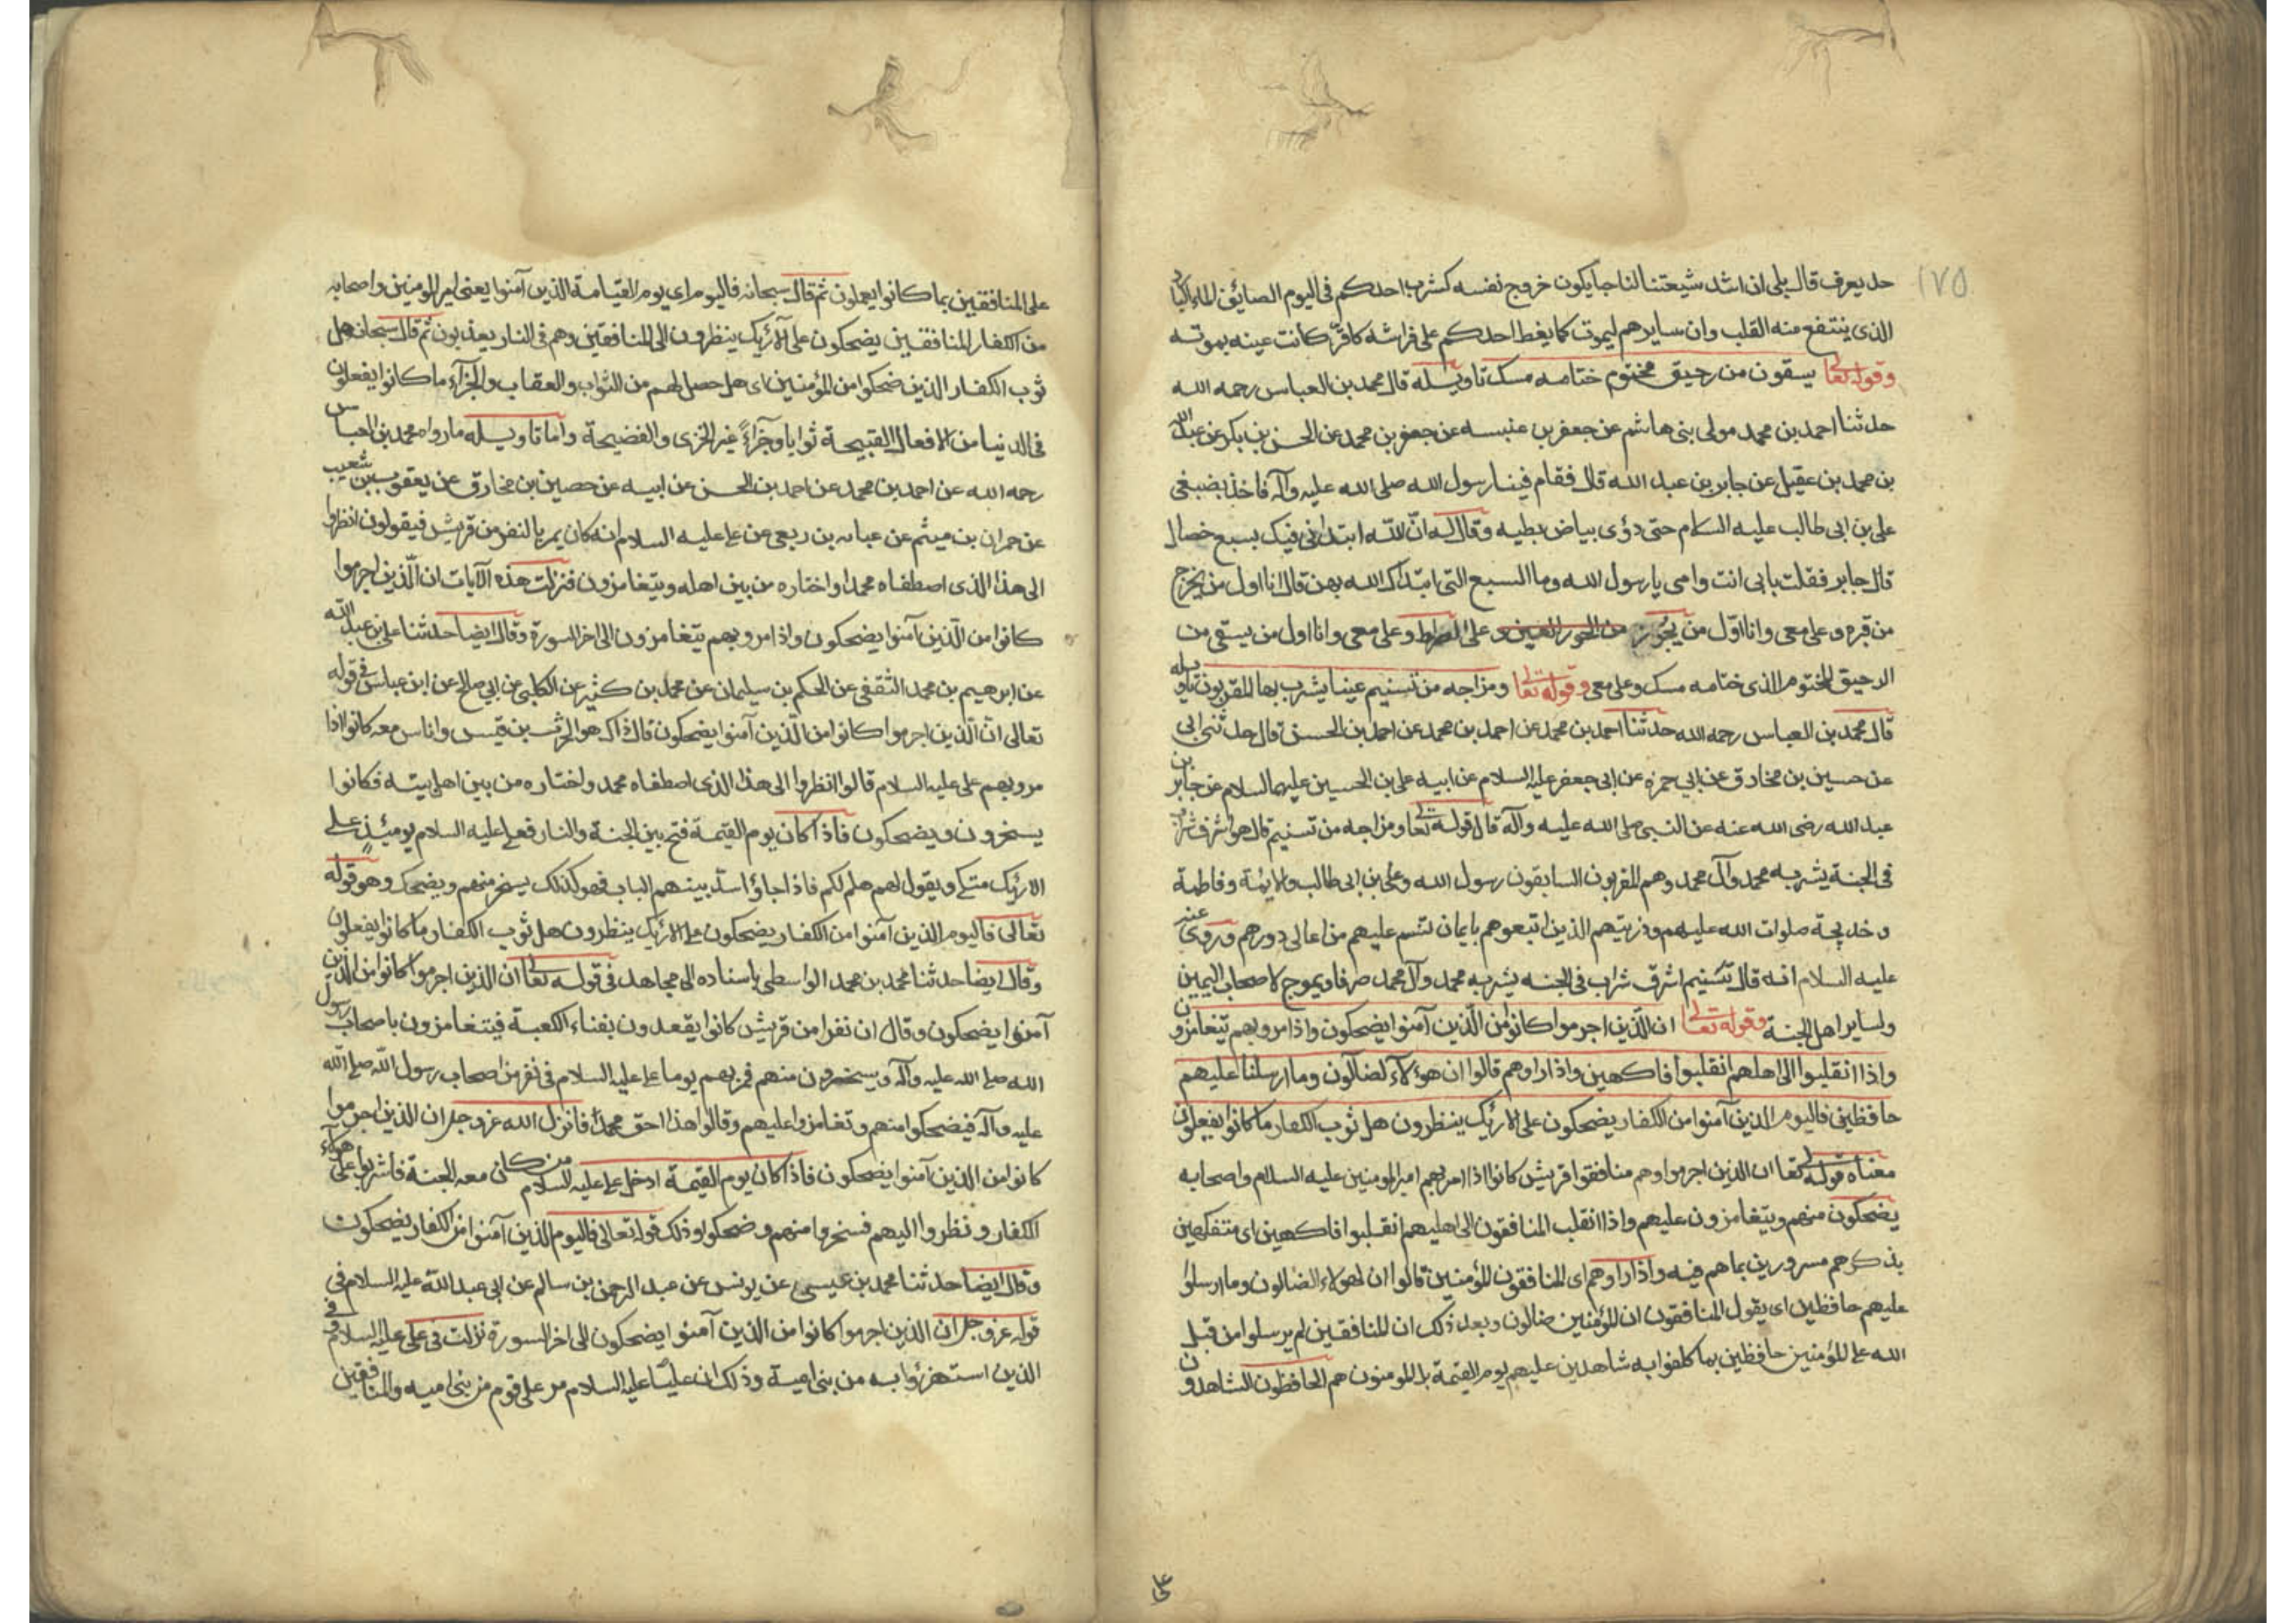 ١٧٥
حد يعرف قال بلى ان اشد شيعتنا لنا حبا يكون خروج نفسه كشرب احدكم فى اليوم الصايف الماء البارد
الذى ينتفع منه القلب وان سايرهم ليموت كما يغط احدكم على فراشه كاقر كانت عينه بموته
وقوله تعا يسقون من رحيق مختوم ختامه مسك تاويله قال محمد بن العباس رحمه الله
حدثنا احمد بن محمد مولى بنى هاشم عن جعفر بن عنبسه عن جعفر بن محمد عن الحسن بن بكر عن عبد الله
بن محمد بن عقيل عن جابر بن عبد الله قال فقام فينا رسول الله صلى الله عليه وآله فاخذ بضبعى
على بن ابى طالب عليه السلام حتى رؤى بياض ابطيه وقال له ان الله ابتدانى فيك بسبع خصال
قال جابر فقلت بابى انت وامى يا رسول الله وما السبع التى ابتداك الله بهن قال انا اول من يخرج
من قبره وعلى معى وانا اول من يجوز من الحور العين وعلى الصراط وعلى معى وانا اول من يسقى من
الرحيق المختوم الذى ختامه مسك وعلى معى وقوله تعا ومزاجه من تسنيم عينا يشرب بها المقربون تاويله
قال محمد بن العباس رحمه الله حدثنا احمد بن محمد عن احمد بن محمد عن احمد بن الحسن قال حدثنى ابى
عن حسين بن مخارق عن ابى حمزه عن ابى جعفر عليه السلام عن ابيه على بن الحسين عليهما السلام عن جابر بن
عبد الله رضى الله عنه عن النبى صلى الله عليه وآله قال قوله تعا ومزاجه من تسنيم قال هو اشرف شراب
فى الجنة يشربه محمد وآل محمد وهم المقربون السابقون رسول الله وعلى بن ابى طالب والايمة وفاطمة
وخديجة صلوات الله عليهم وذريتهم الذين اتبعوهم بايمان تتسنم عليهم من اعالى دورهم وروى عنه
عليه السلام انه قال تسنيم اشرف شراب فى الجنه يشربه محمد وآل محمد صرفا ويموج لاصحاب اليمين
ولساير اهل الجنة وقوله تعا ان الذين اجرموا كانوا من الذين آمنوا يضحكون واذا مروا بهم يتغامزون
واذا انقلبوا الى اهلهم انقلبوا فاكهين واذا راوهم قالوا ان هؤلاء لضالون وما ارسلنا عليهم
حافظين فاليوم الذين آمنوا من الكفار يضحكون على الارئك ينظرون هل ثوب الكفار ما كانوا يفعلون
معناه قوله تعا ان الذين اجرموا وهم منافقوا قريش كانوا اذا امر بهم امير المومنين عليه السلام واصحابه
يضحكون منهم ويتغامزون عليهم واذا انقلب المنافقون الى اهليهم انقلبوا فاكهين اى متفكهين
بذكرهم مسرورين بما هم فيه واذا راوهم اى المنافقون للمؤمنين قالوا ان لهؤلاء الضالون وما ارسلوا
عليهم حافظين اى يقول المنافقون ان المؤمنين ضالون وبعد ذلك ان المنافقين لم يرسلوا من قبل
الله على المؤمنين حافظين بما كلفوا به شاهدين عليهم يوم القيمة بل المومنون هم الحافظون الشاهدون
على
على المنافقين بما كانوا يعملون ثم قال سبحانه فاليوم اى يوم القيامة الذين آمنوا يعنى امير المومنين واصحابه
من الكفار المنافقين يضحكون على الارئك ينظرون الى المنافقين وهم فى النار يعذبون ثم قال سبحانه هل
ثوب الكفار الذين ضحكوا من المؤمنين اى هل حصل لهم من الثواب والعقاب والجزاء ما كانوا يفعلون
فى الدنيا من الافعال القبيحة ثوابا وجزاء غير الخزى والفضيحة واما تاويله ما رواه محمد بن العباس
رحمه الله عن احمد بن محمد عن احمد بن الحسن عن ابيه عن حصين بن مخارق عن يعقوب بن شعيب
عن حمران بن ميثم عن عبايه بن ربعى عن على عليه السلام انه كان يمر بالنفر من قريش فيقولون انظروا
الى هذا الذى اصطفاه محمد واختاره من بين اهله ويتغامزون فنزلت هذه الآيات ان الذين اجرموا
كانوا من الذين آمنوا يضحكون واذا مروا بهم يتغامزون الى اخر السورة وقال ايضا حدثنا على بن عبد الله
عن ابرهيم بن محمد الثقفى عن الحكم بن سليمان عن محمد بن كثير عن الكلبى عن ابى صالح عن ابن عباس فى قوله
تعالى ان الذين اجرموا كانوا من الذين آمنوا يضحكون قال ذاك هو الحرث بن قيس واناس معه كانوا اذا
مر بهم على عليه السلام قالوا انظروا الى هذا الذى اصطفاه محمد واختاره من بين اهل بيته فكانوا
يسخرون ويضحكون فاذا كان يوم القيمة فتح بين الجنة والنار فعلى عليه السلام يومئذ على
الارئك متكى ويقول لهم هلم لكم فاذا جاؤا سد بينهم الباب فهو كذلك يسخر منهم ويضحك وهو قوله
تعالى فاليوم الذين آمنوا من الكفار يضحكون على الارئك ينظرون هل ثوب الكفار ما كانوا يفعلون
وقال ايضا حدثنا محمد بن محمد الواسطى باسناده الى مجاهد فى قوله تعا ان الذين اجرموا كانوا من الذين
آمنوا يضحكون وقال ان نفرا من قريش كانوا يقعدون بفناء الكعبة فيتغامزون باصحاب رسول
الله صلى الله عليه وآله ويسخرون منهم فمر بهم يوما على عليه السلام فى نفر من اصحاب رسول الله صلى الله
عليه وآله فيضحكوا منهم وتغامزوا عليهم وقالوا هذا احق محمد فانزل الله عز وجل ان الذين اجرموا
كانوا من الذين آمنوا يضحكون فاذا كان يوم القيمة ادخل على عليه السلام من كان معه الجنة فاشرفوا على هؤلاء
الكفار ونظروا اليهم فسخروا منهم وضحكوا وذلك قوله تعالى فاليوم الذين آمنوا من الكفار يضحكون
وقال ايضا حدثنا محمد بن عيسى عن يونس عن عبد الرحمن بن سالم عن ابى عبد الله عليه السلام فى
قوله عز وجل ان الذين اجرموا كانوا من الذين آمنوا يضحكون الى اخر السورة نزلت فى على عليه السلام وفى
الذين استهزؤا به من بنى امية وذلك ان عليا عليه السلام مر على قوم من بنى اميه والمنافقين